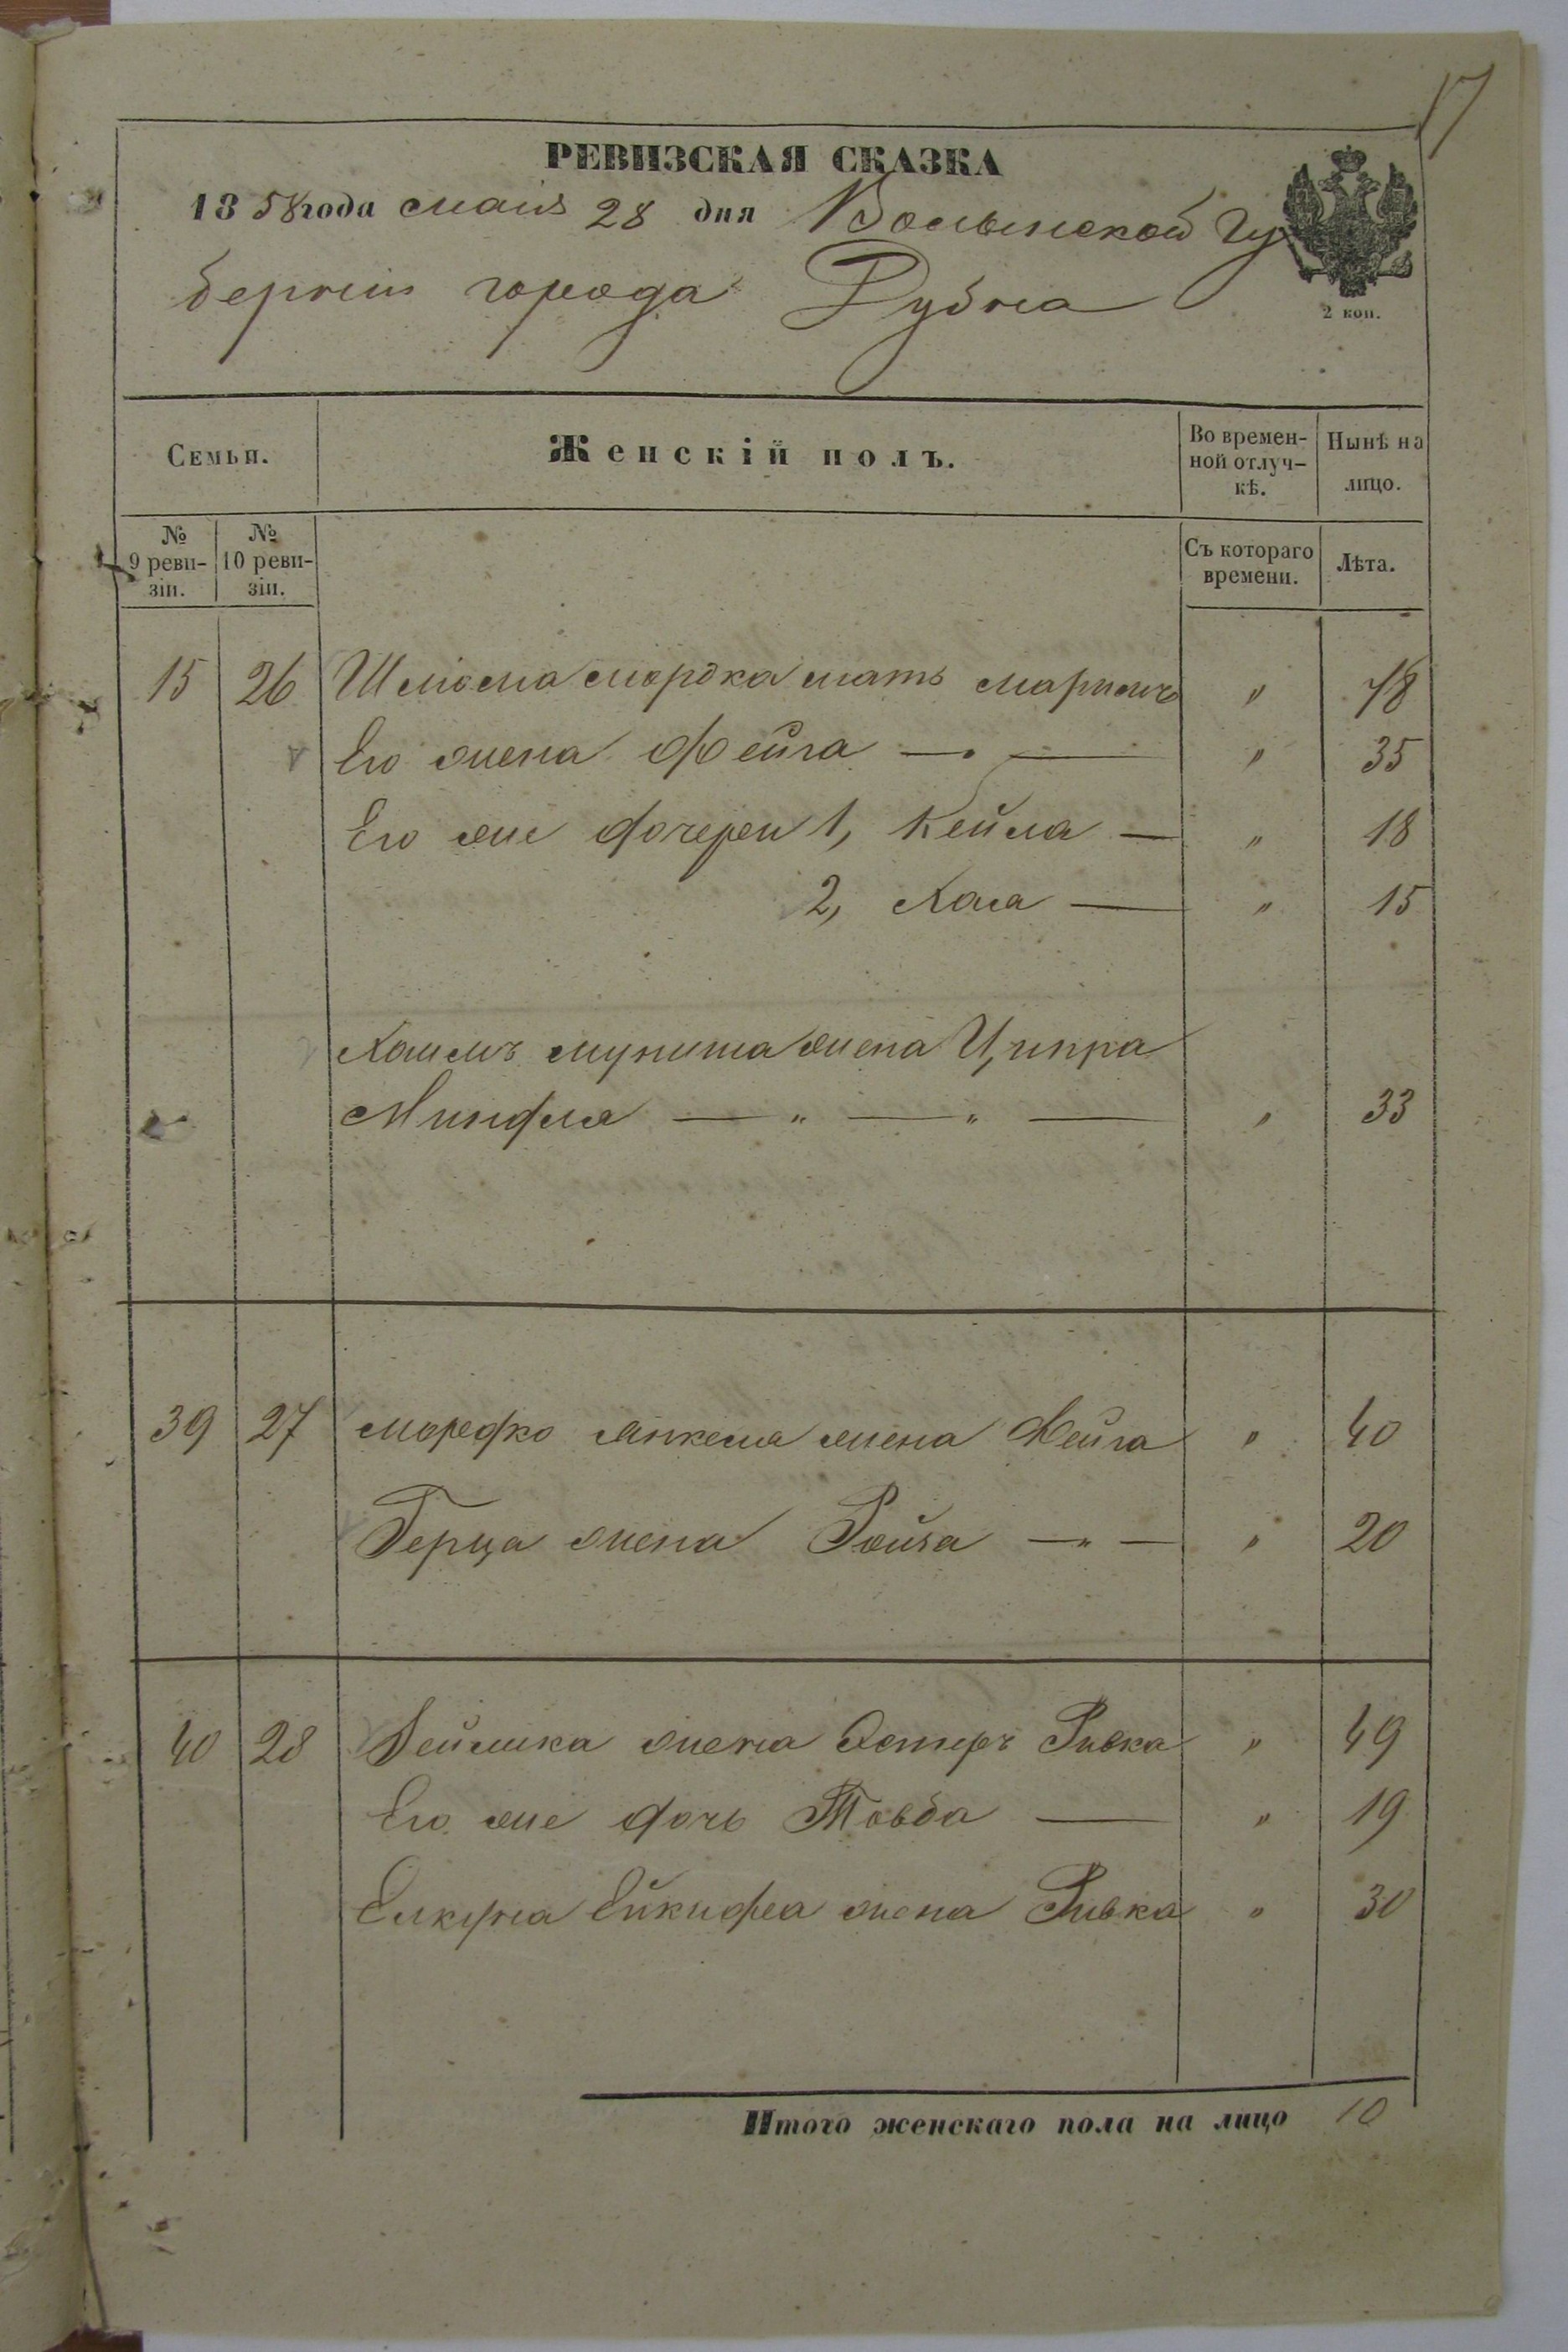 17
РЕВИЗСКАЯ СКАЗКА
1858 года маия 28 дня Волынской Гу
берніи города Дубна
2 коп.
Семьи. Женскій полъ. Во времен- Нынѣ на
ной отлуч- лицо.
кѣ.
№ № Съ котораго Лѣта.
9 реви- 10 реви- времени.
зіи. зіи.
15 26 Шліома Мордка мать Маріемъ " 78
Его жена Фейга — " 35
Его же дочери 1, Кейла — " 18
2, Хаса — " 15
Хаимъ жена Ципра
Миндля — " — " — " 33
39 27 Мордко Янкеля жена Фейга " 40
Герца жена Ройза — " — " 20
40 28 Зейлика жена Эстеръ Ривка " 49
Его же дочь Товба — " 19
жена Ривка " 30
Итого женскаго пола на лицо 10